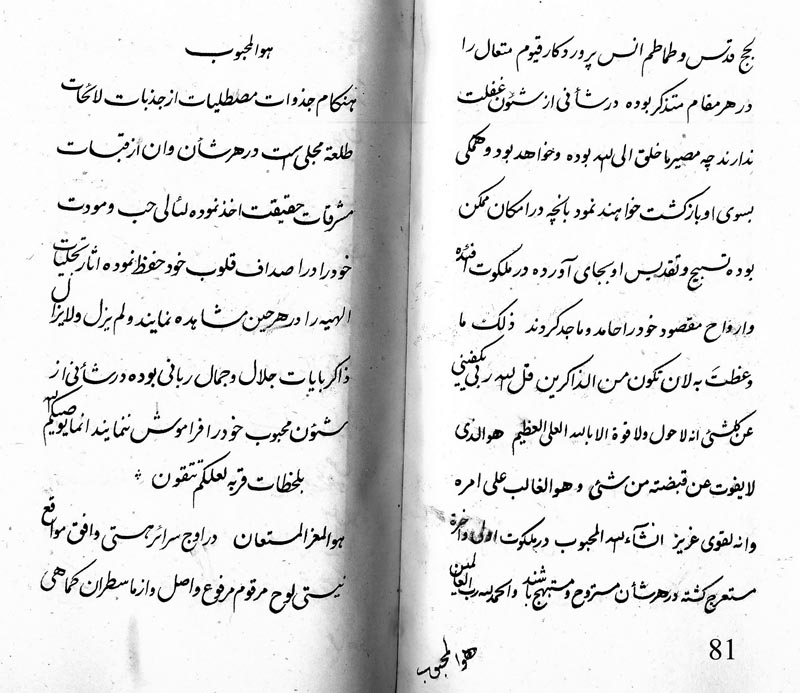 لجج قدس و طماطم انس پروردکار قیوم متعال را
در هر مقام متذکر بوده در شأنی از شئون غفلت
ندارند چه مصیر ما خلق الی الله بوده و خواهد بود و همکی
بسوی او بازکشت خواهند نمود بانچه در امکان ممکن
بوده تسبیح و تقدیس او بجای آورده در ملکوت افئده
و ارواح مقصود خود را حامد و ماجد کردند ذلک ما
وعظت به لان تکون من الذاکرین قل الله ربی یکفینی
عن کلشئ انه لا حول ولا قوة الا بالله العلی العظیم هو الذی
لا یفوت عن قبضته من شئ و هو الغالب علی امره
و انه لقوی عزیز انشاءالله المحبوب در ملکوت اولی و اخرة
متعرج کشته در هر شأن مستروح و مبتهج باشند و الحمد لله رب العالمین
81
هو المحبوب
هو المحبوب
هنکام جذوات مصطلیات از جذبات لائحات
طلعة مجلی است در هر شأن و ان از قبسات
مشرقات حقیقت اخذ نموده لئالی حب و مودت
خود را در اصداف قلوب خود حفظ نموده اثار تجلیات
الهیه را در هر حین مشاهده نمایند و لم یزل و لا یزال
ذاکر بایات جلال و جمال ربانی بوده در شأنی از
شئون محبوب خود را فراموش ننمایند انما یوصیکم الله
بلحظات قربه لعلکم تتقون
هو المعز المستعان در اوج سرائر هستی وافق مواقع
نیستی لوح مرقوم مرفوع واصل و از ماسطران کماهی